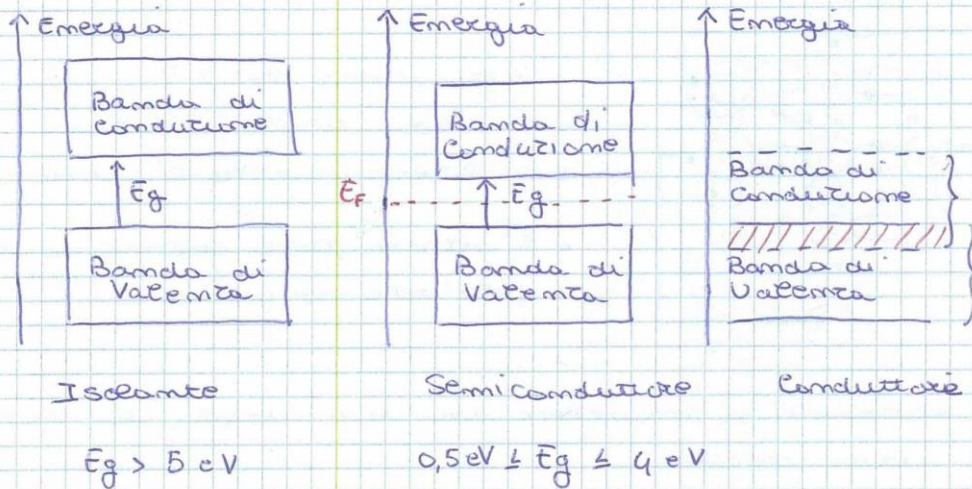 Energia
Banda di
Conduzione
Eg
Banda di
Valenza
Isolante
Eg > 5 eV
Energia
Banda di
Conduzione
EF
Eg
Banda di
Valenza
Semiconduttore
0,5 eV ≤ Eg ≤ 4 eV
Energia
Banda di
Conduzione
Banda di
Valenza
Conduttore